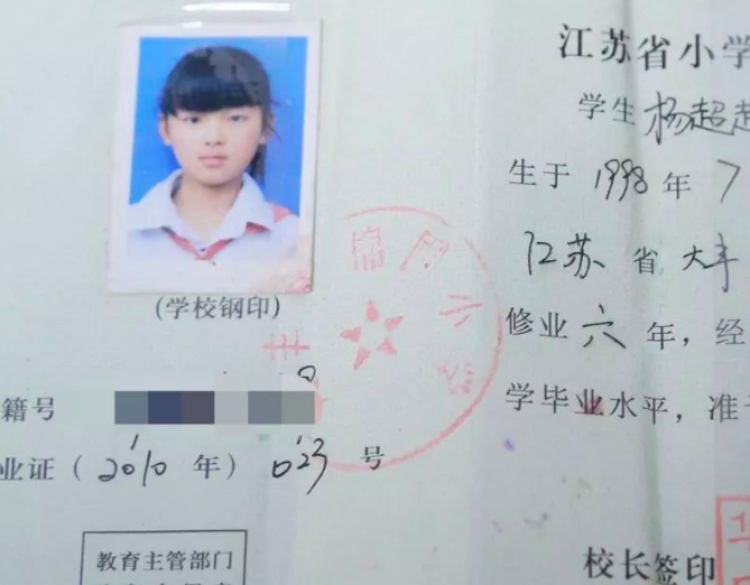 江苏省小学
学生 杨超
生于 1998 年 7
江苏 省 大丰
(学校钢印)
修业 六 年，经
籍号
学毕业水平，准
业证（2010 年）023 号
教育主管部门
校长签印